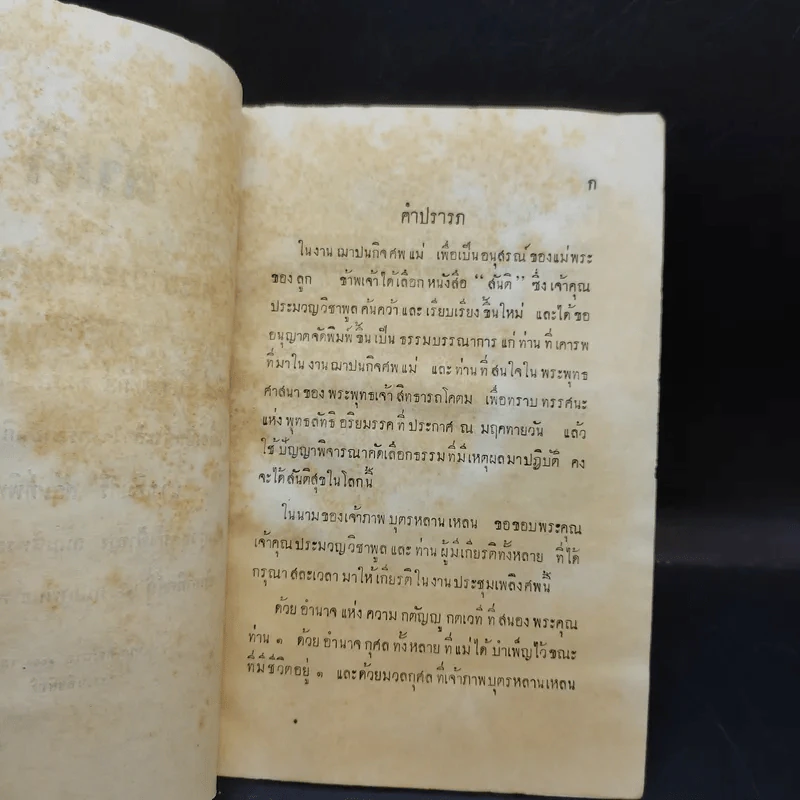 ก
คำปรารภ
ในงาน ฌาปนกิจศพ แม่ เพื่อเป็น อนุสรณ์ ของแม่พระ
ของ ลูก ข้าพเจ้าได้เลือก หนังสือ “ สันติ ” ซึ่ง เจ้าคุณ
ประมวญวิชาพูล ค้นคว้า และ เรียบเรียง ขึ้นใหม่ และได้ ขอ
อนุญาตจัดพิมพ์ ขึ้น เป็น ธรรมบรรณาการ แก่ ท่าน ที่ เคารพ
ที่มาใน งาน ฌาปนกิจศพ แม่ และ ท่าน ที่ สนใจ ใน พระพุทธ
ศาสนา ของ พระพุทธเจ้า สิทธารถโคตม เพื่อทราบ ทรรศนะ
แห่ง พุทธลัทธิ อริยมรรค ที่ ประกาศ ณ มฤคทายวัน แล้ว
ใช้ ปัญญาพิจารณาคัดเลือกธรรม ที่มีเหตุผลมาปฏิบัติ คง
จะได้ สันติสุขในโลกนี้
ในนาม ของเจ้าภาพ บุตรหลาน เหลน ขอ ขอบพระคุณ
เจ้าคุณ ประมวญวิชาพูล และ ท่าน ผู้มีเกียรติทั้งหลาย ที่ ได้
กรุณา สละเวลา มาให้ เกียรติ ใน งาน ประชุมเพลิงศพนี้
ด้วย อำนาจ แห่ง ความ กตัญญู กตเวที ที่ สนอง พระคุณ
ท่าน ๑ ด้วย อำนาจ กุศล ทั้งหลาย ที่ แม่ ได้ บำเพ็ญไว้ ขณะ
ที่มี ชีวิตอยู่ ๑ และด้วยมวลกุศล ที่เจ้าภาพ บุตรหลานเหลน